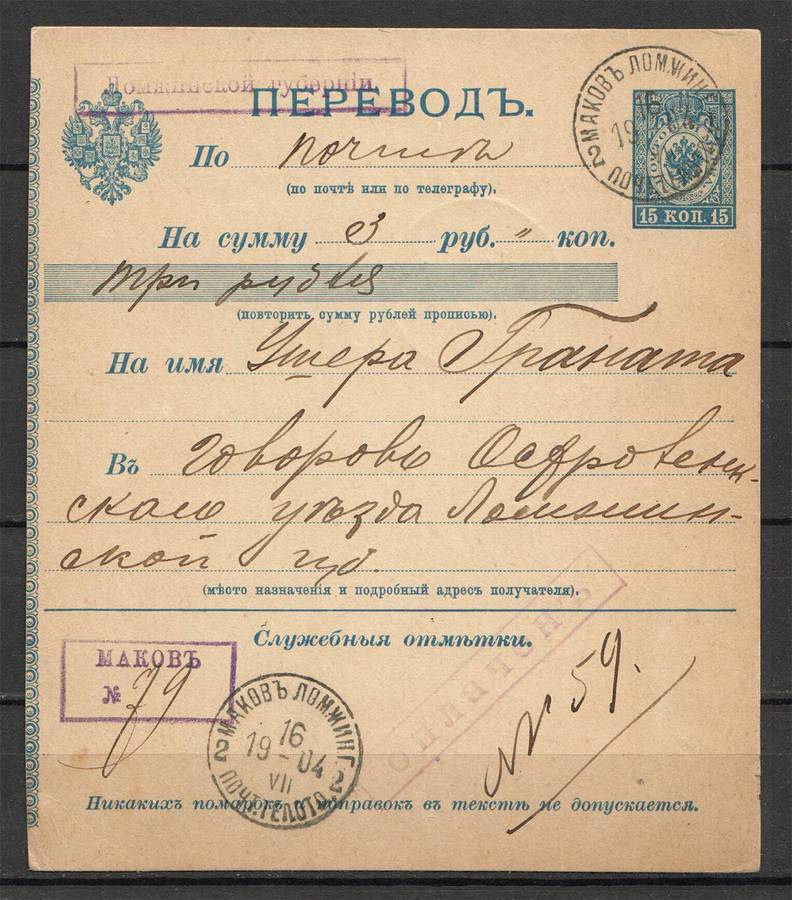 Ломжинской губерніи
ПЕРЕВОДЪ.
МАКОВЪ ЛОМЖИНГ.
2
19
15 КОП. 15
По почтѣ
(по почтѣ или по телеграфу).
На сумму 3 руб. " коп.
три рубля
(повторить сумму рублей прописью).
На имя Ушера Граната
Въ Говорово Островен-
скаго уѣзда Ломжин-
ской губ.
(мѣсто назначенія и подробный адресъ получателя).
Служебныя отмѣтки.
МАКОВЪ
№ 79
МАКОВЪ ЛОМЖИНГ.
16
19-04
VII
2 2
ПОЧТ.ТЕЛ.ОТД.
№ 59.
Никакихъ помарокъ и поправокъ въ текстѣ не допускается.